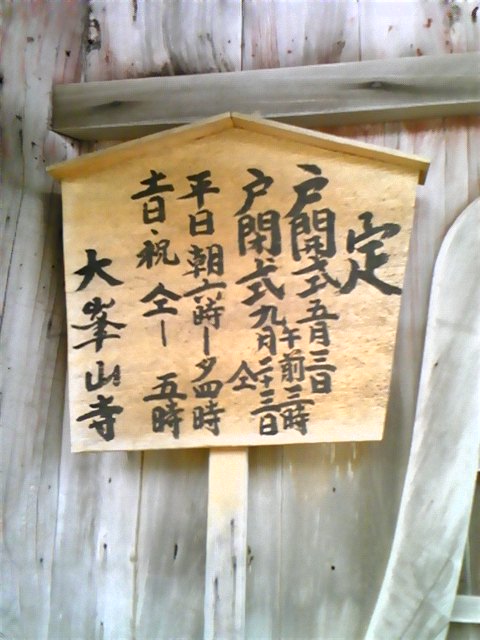 定
戸開式五月三日
午前三時
戸閉式九月二十三日
仝
平日朝六時ー夕四時
土日・祝仝ー五時
大峯山寺